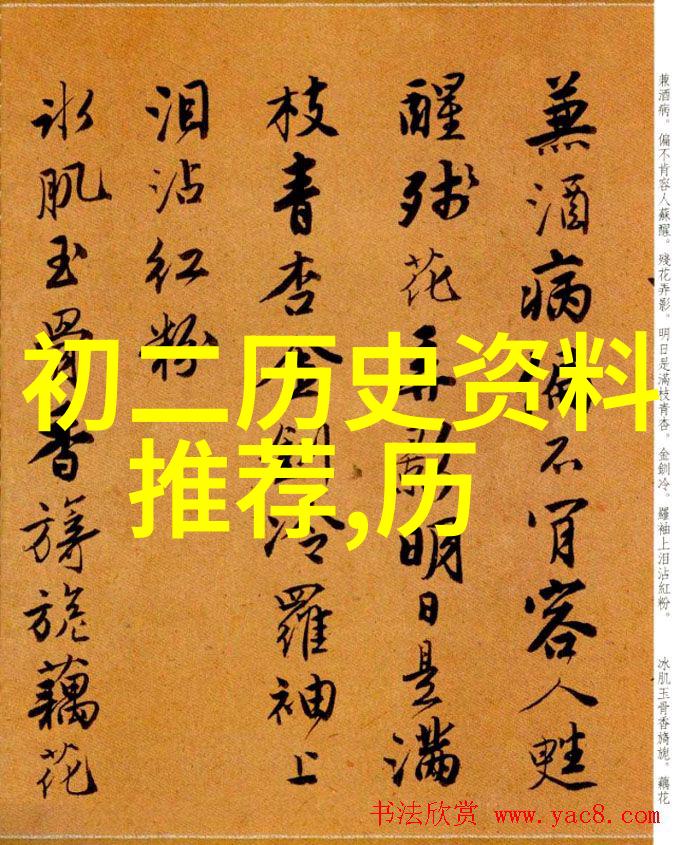 兼酒病偏不肯容人甦
醒残花弄影明日是滿
枝青杏金釧冷羅袖上
泪沾红粉
冰肌玉骨香旖旎藕花
初二历史资料
推荐,历
兼酒病。偏不肯容人蘇醒。殘花弄影。明日是滿枝青杏。金釧冷。羅袖上泪沾紅粉。
冰肌玉骨香旖旎。藕花
书法欣赏 www.yac8.com